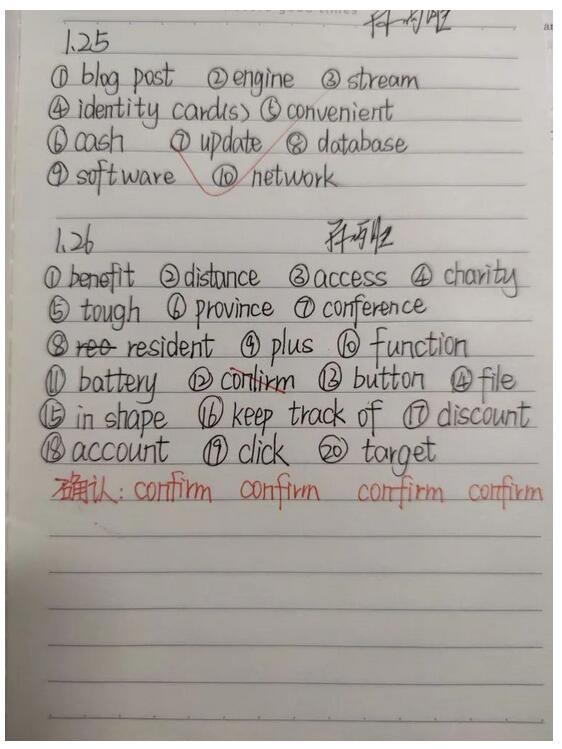 1.25
① blog post ② engine ③ stream
④ identity card(s) ⑤ convenient
⑥ cash ⑦ update ⑧ database
⑨ software ⑩ network
1.26
① benefit ② distance ③ access ④ charity
⑤ tough ⑥ province ⑦ conference
⑧ resident ⑨ plus ⑩ function
⑪ battery ⑫ conlirm ⑬ button ⑭ file
⑮ in shape ⑯ keep track of ⑰ discount
⑱ account ⑲ click ⑳ target
确认: confirm confirm confirm confirm